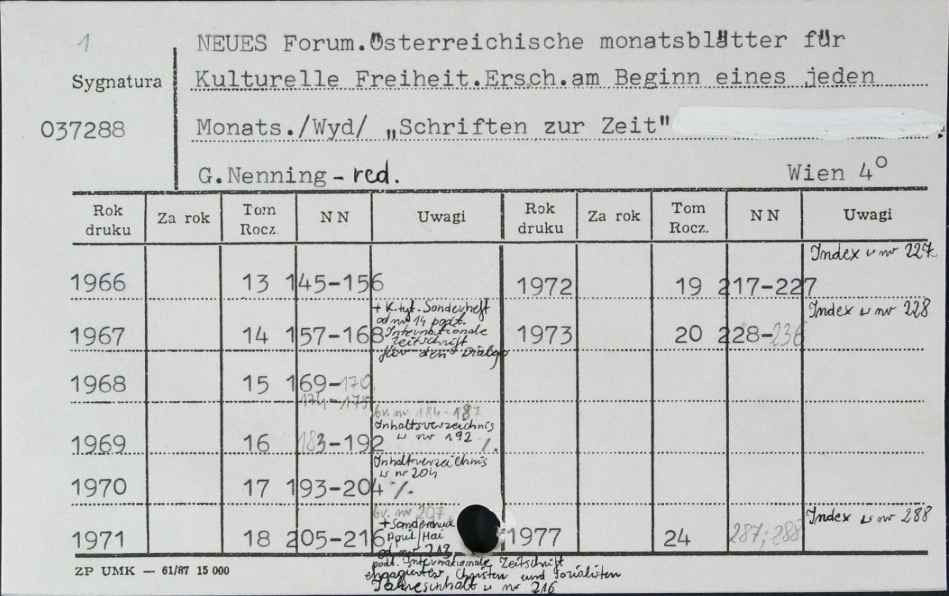 1
NEUES Forum.Österreichische monatsblätter für
Sygnatura
Kulturelle Freiheit.Ersch.am Beginn eines jeden
037288
Monats./Wyd/ „Schriften zur Zeit"
G.Nenning - red.
Wien 4°
Rok druku Za rok Tom Rocz. N N Uwagi Rok druku Za rok Tom Rocz. N N Uwagi
1966 13 145-156 1972 19 217-227 Index w nr 227
1967 14 157-168 + K.tyt. Sonderheft
od nr 14 podt.
Internationale
Zeitschrift
für den Dialog
1973 20 228-236 Index w nr 228
1968 15 169-170,
174-175
1969 16 183-192 br. nr 184-187
Inhaltsverzeichnis
w nr 192 ./.
1970 17 193-204 Inhaltverzeichnis
w nr 204
./.
1971 18 205-216 br. nr 207,
+ Sonderdruck
April/Mai
od nr 213
podt. Internationale Zeitschrift
engagierter Christen und Sozialisten
Jahresinhalt w nr 216
1977 24 287; 288 Index w nr 288
ZP UMK — 61/87 15 000